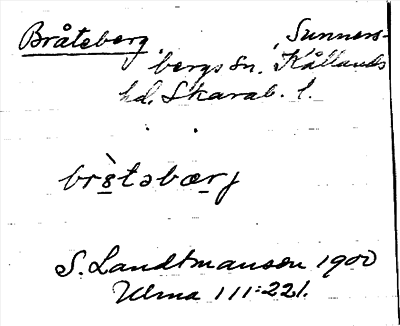 Bråteberg, Sunners-
bergs sn. Kållands
hd. Skarab. l.
S. Landtmanson 1900
Ulma 111:221.